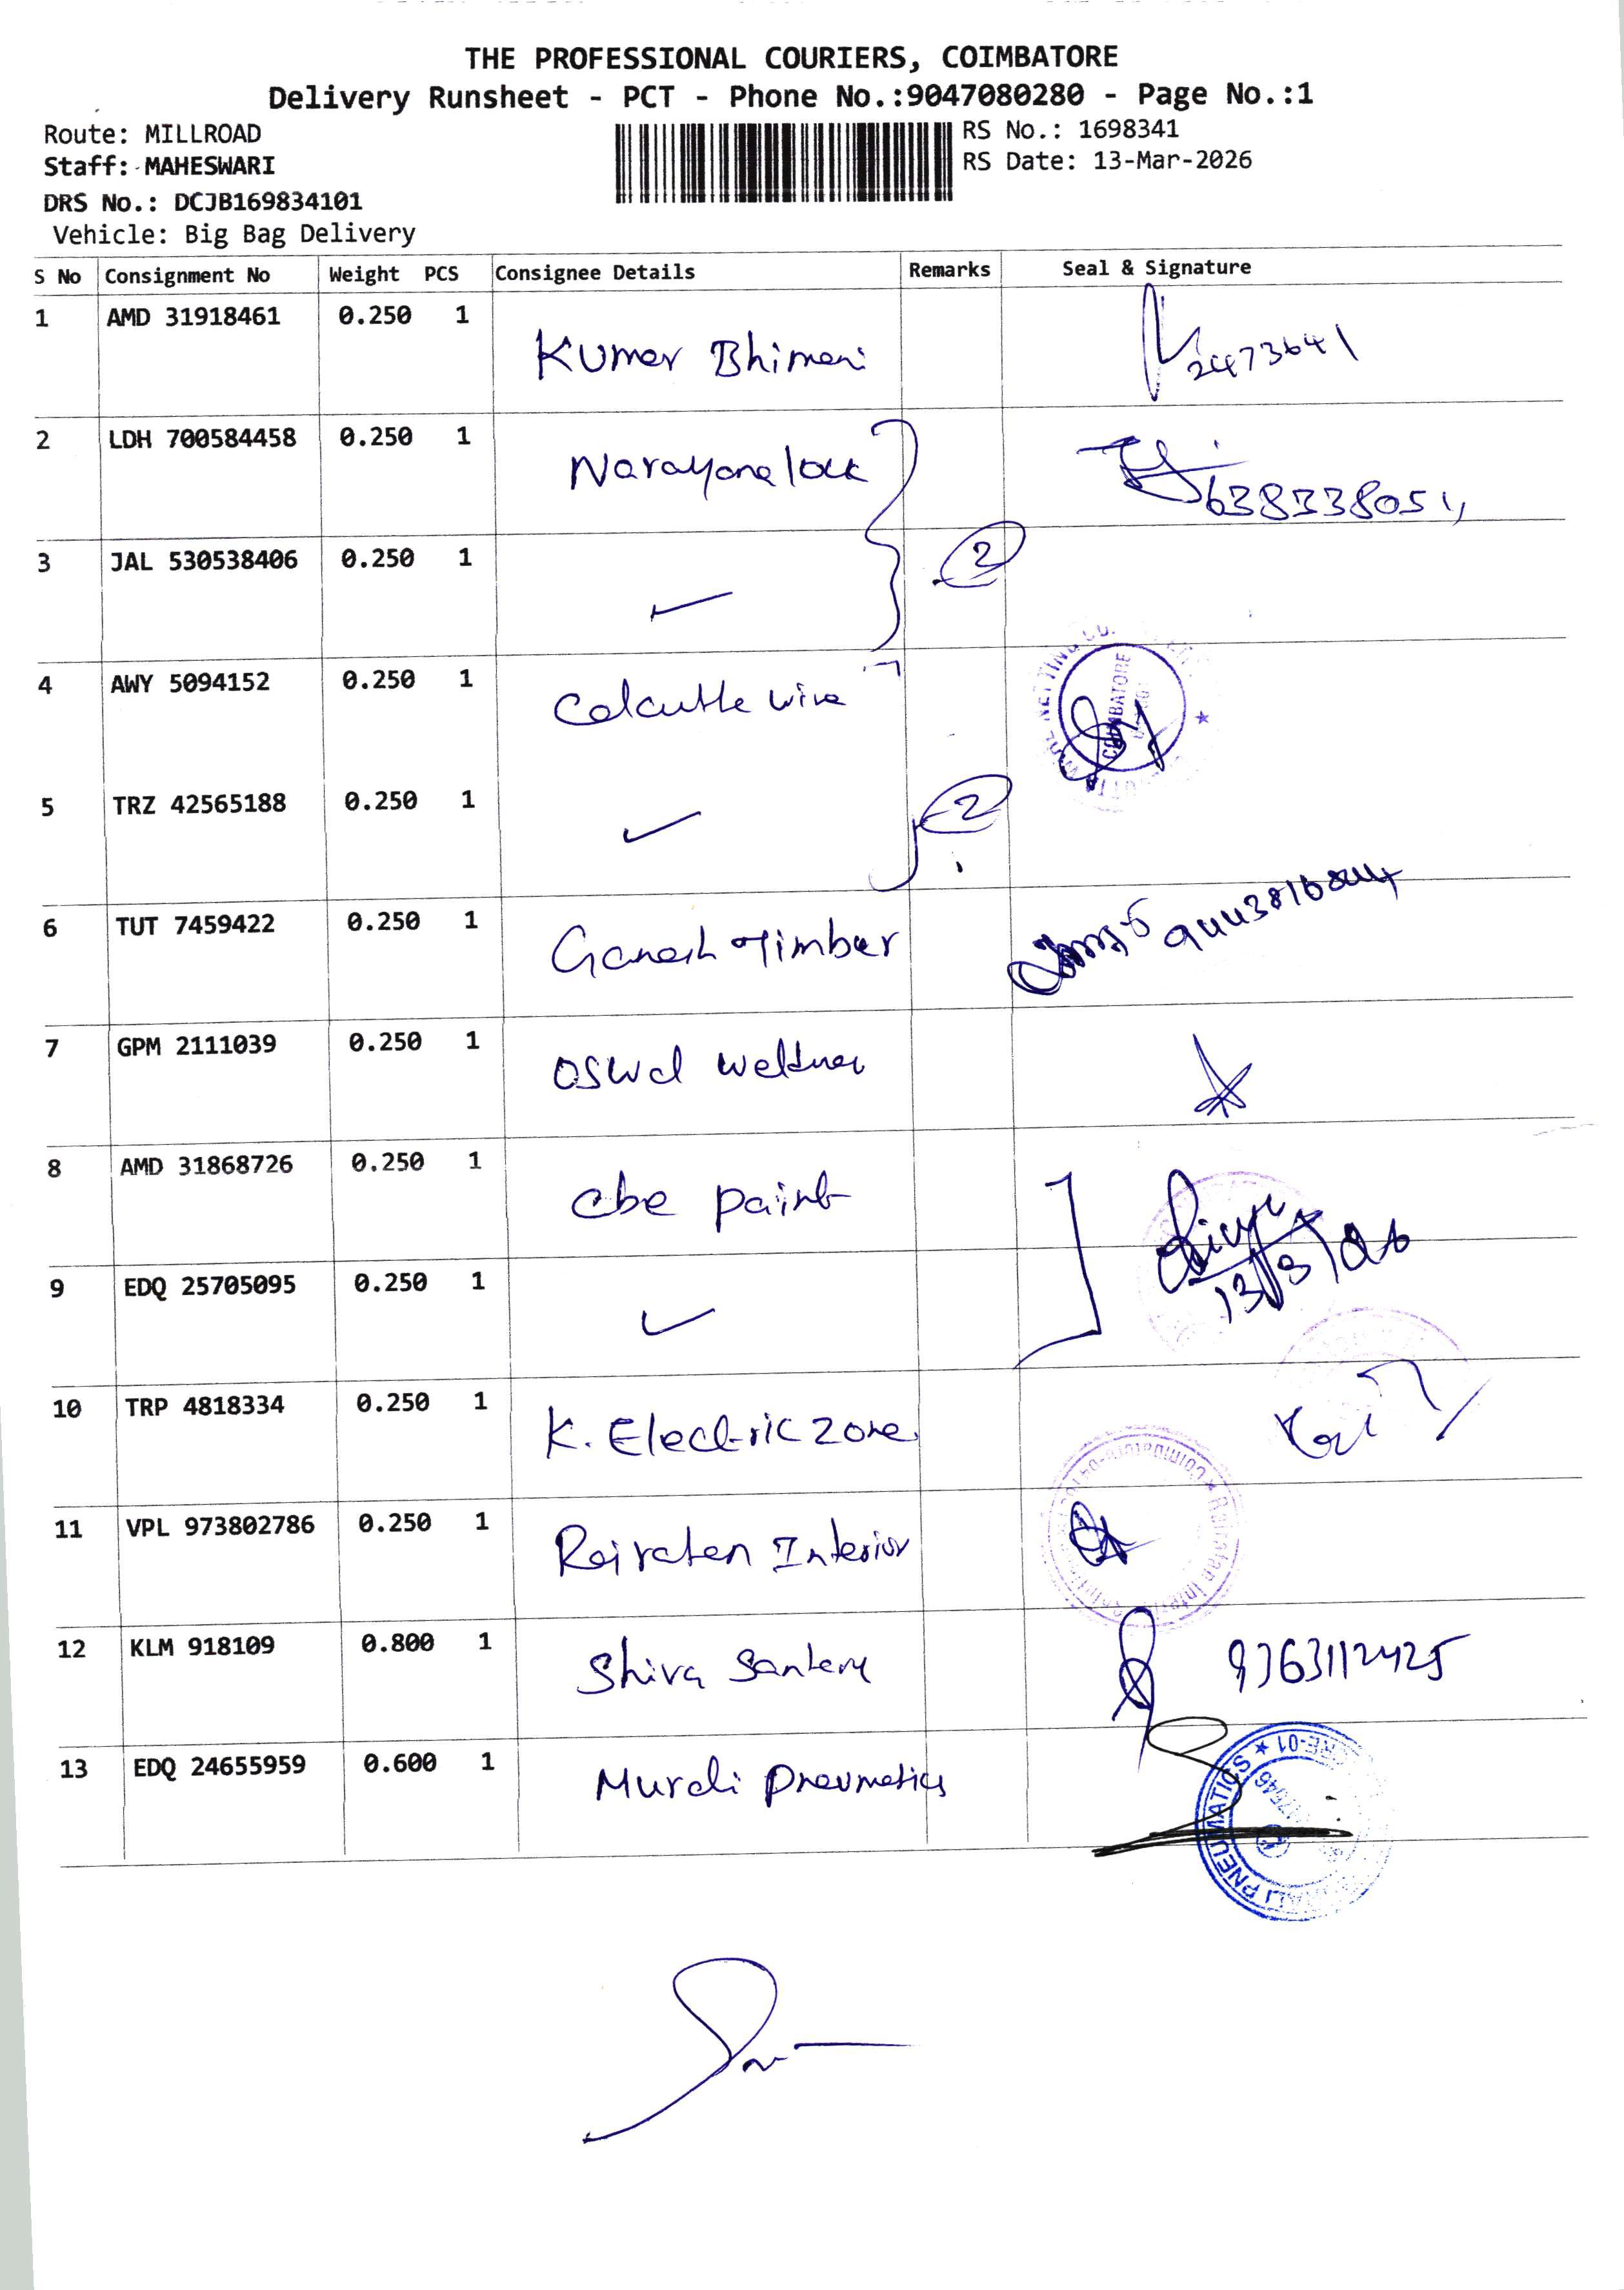 THE PROFESSIONAL COURIERS, COIMBATORE
Delivery Runsheet - PCT - Phone No.:9047080280 - Page No.:1
Route: MILLROAD
RS No.: 1698341
Staff: MAHESWARI
RS Date: 13-Mar-2026
DRS No.: DCJB169834101
Vehicle: Big Bag Delivery
S No Consignment No Weight PCS Consignee Details Remarks Seal & Signature
1 AMD 31918461 0.250 1 Kumar Bhimani 2473641
2 LDH 700584458 0.250 1 Narayana lock
3 JAL 530538406 0.250 1 2
4 AWY 5094152 0.250 1 Calcutta wire COIMBATORE
5 TRZ 42565188 0.250 1 2
6 TUT 7459422 0.250 1 Ganesh Timber
7 GPM 2111039 0.250 1 Oswal
8 AMD 31868726 0.250 1 cbe paint
13/3/26
9 EDQ 25705095 0.250 1
10 TRP 4818334 0.250 1 K. Electric Zone
11 VPL 973802786 0.250 1 Rajratan Interior
12 KLM 918109 0.800 1 Shiva 9363112425
13 EDQ 24655959 0.600 1 Murali Pneumatics PNEUMATICS